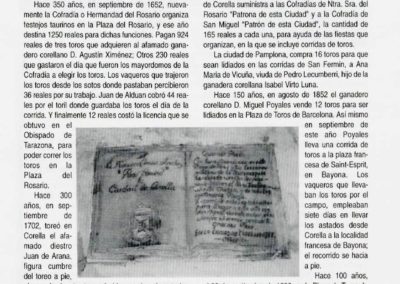 Hace 350 años, en septiembre de 1652, nueva-
mente la Cofradía o Hermandad del Rosario organiza
festejos taurinos en la Plaza del Rosario, y ese año
destina 1250 reales para dichas funciones. Pagan 924
reales de tres toros que adquieren al afamado gana-
dero corellano D. Agustín Ximénez; Otros 230 reales
que gastaron el día que fueron los mayordomos de la
Cofradía a elegir los toros. Los vaqueros que trajeron
los toros desde los sotos donde pastaban percibieron
36 reales por su trabajo. Juan de Alduan cobró 44 rea-
les por el toril donde guardaba los toros el día de la
corrida. Y finalmente 12 reales costó la licencia que se
obtuvo en el
Obispado de
Tarazona, para
poder correr los
toros en la
Plaza del
Rosario.
Hace 300
años, en sep-
tiembre de
1702, toreó en
Corella el afa-
mado diestro
Juan de Arana,
figura cumbre
del toreo a pie,
de Corella suministra a las Cofradías de Ntra. Sra. del
Rosario "Patrona de esta Ciudad" y a la Cofradía de
San Miguel "Patrón de esta Ciudad", la cantidad de
165 reales a cada una, para ayuda de las fiestas que
organizan, en la que se incluye corridas de toros.
La ciudad de Pamplona, compra 16 toros para que
sean lidiados en las corridas de San Fermín, a Ana
María de Vicuña, viuda de Pedro Lecumberri, hijo de la
ganadera corellana Isabel Virto Luna.
Hace 150 años, en agosto de 1852 el ganadero
corellano D. Miguel Poyales vende 12 toros para ser
lidiados en la Plaza de Toros de Barcelona. Así mismo
en septiembre de
este año Poyales
lleva una corrida de
toros a la plaza fran-
cesa de Saint-Esprit,
en Bayona. Los
vaqueros que lleva-
ban los toros por el
campo, empleaban
siete días en llevar
los astados desde
Corella a la localidad
francesa de Bayona;
el recorrido se hacía
a pie.
Hace 100 años,